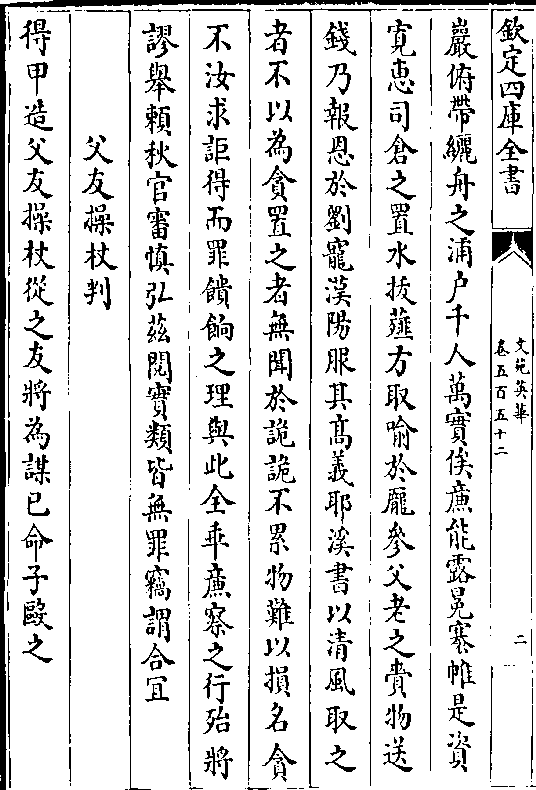 欽定四庫全書
文苑英華
卷五百五十二
二
巖俯帶纚舟之浦户千人萬實俟亷能露冕褰帷是資
寛恵司倉之置水拔䪥方取喻於龎參父老之賫物送
錢乃報恩於劉寵漢陽服其髙義耶溪書以清風取之
者不以為貪置之者無聞於詭詭不累物難以損名貪
不汝求詎得而罪饋餉之理與此全乖亷察之行殆將
謬舉頼秋官審慎弘兹閲實類皆無罪竊謂合冝
父友操杖判
得甲造父友操杖從之友將為謀已命子毆之